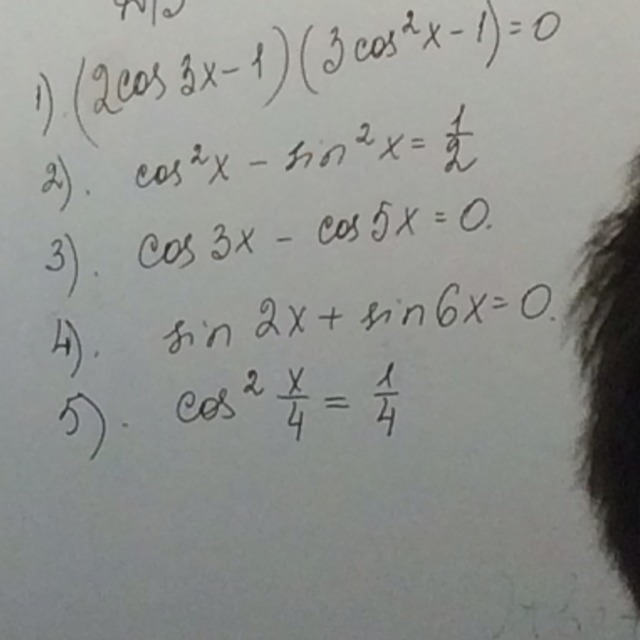 Д/З
1). (2cos 3x-1)(3cos²x-1)=0
2). cos²x - sin²x = 1/2
3). cos 3x - cos 5x = 0.
4). sin 2x + sin 6x = 0.
5). cos² x/4 = 1/4